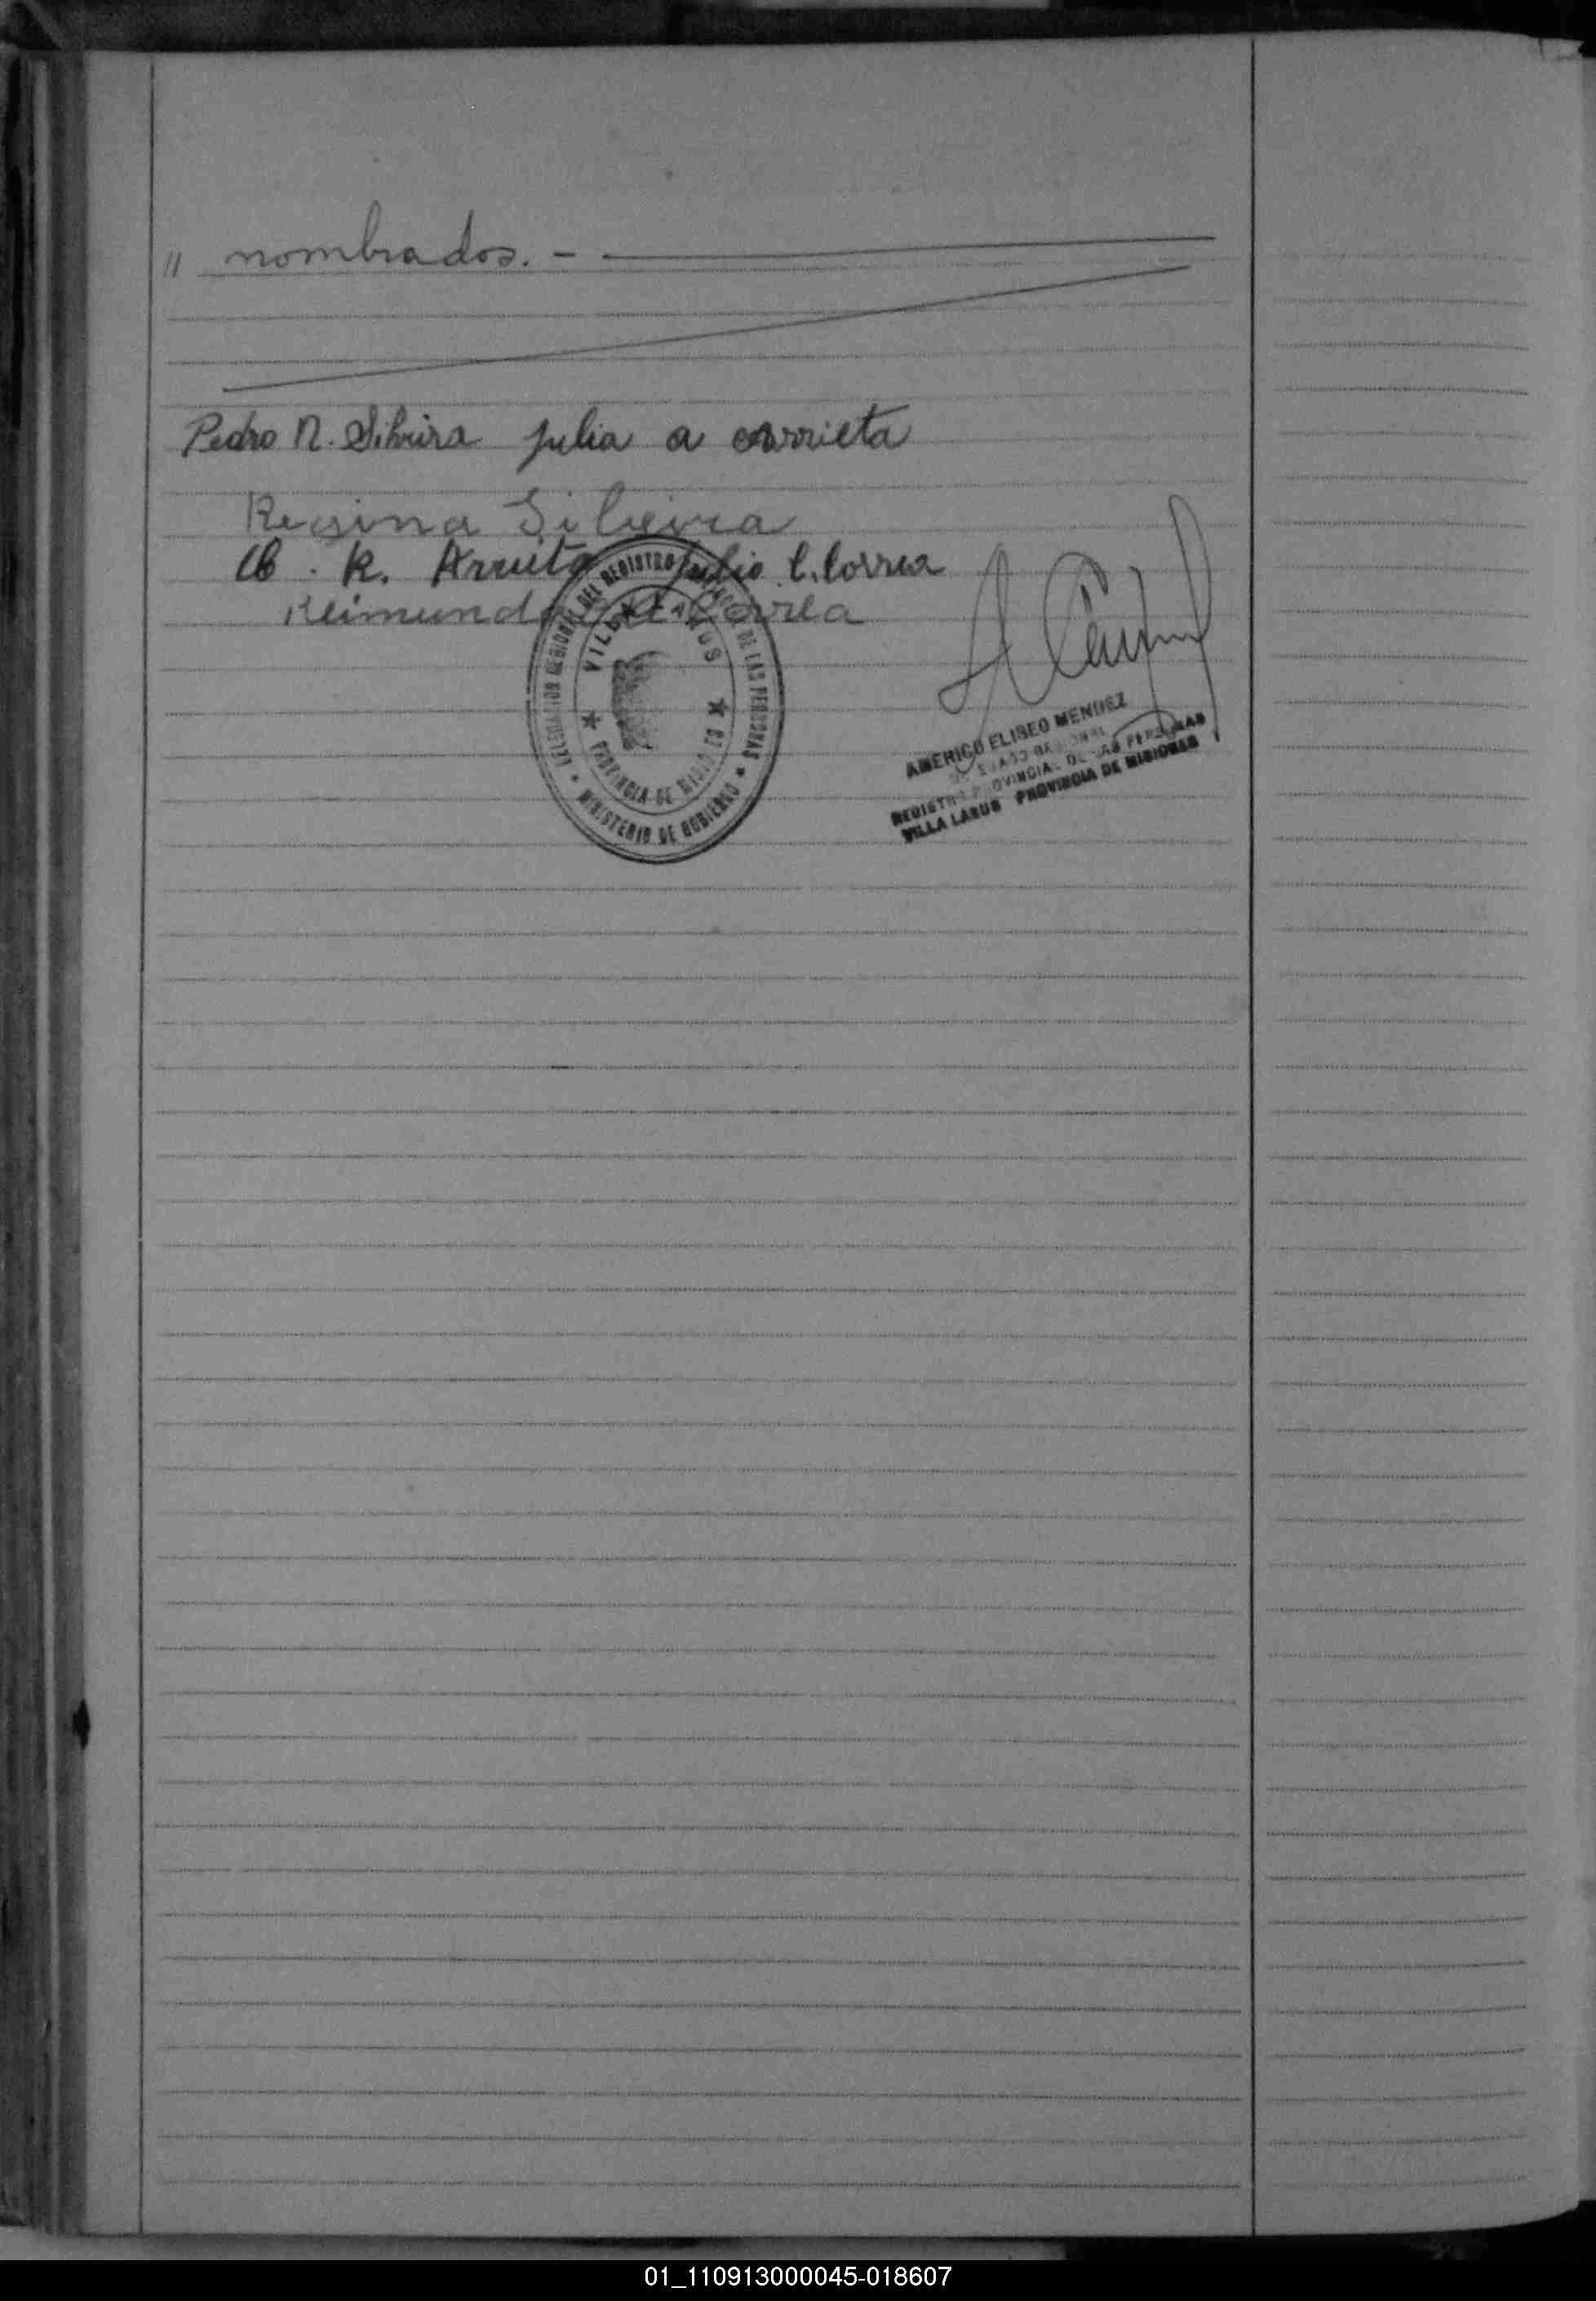 " nombrados. -
Pedro N. Silveira Julia a arrieta
Regina Silveira
R. Arrieta Julio C. Correa
Reimundo Correa
DELEGACION REGIONAL DEL REGISTRO DE LAS PERSONAS
MINISTERIO DE GOBIERNO
VILLA LANUS
PROVINCIA DE MISIONES
AMERICO ELISEO MENDEZ
REGISTRO PROVINCIAL DE LAS PERSONAS
VILLA LANUS PROVINCIA DE MISIONES
01_110913000045-018607